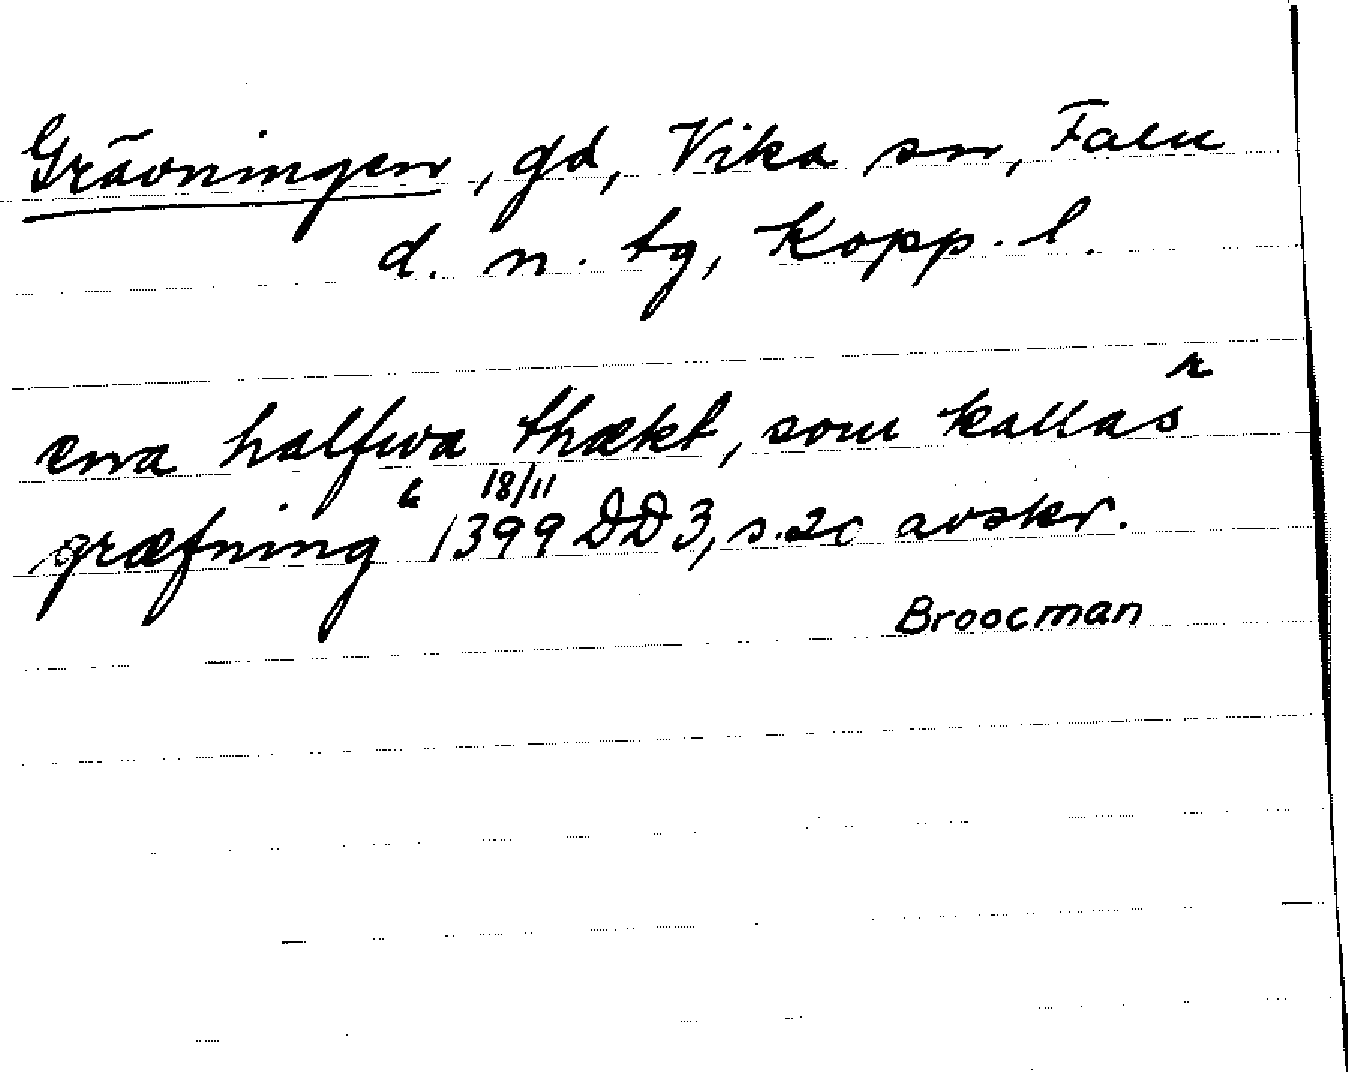 Grävningen, gd, Vika sn, Falu
d. n. tg, Kopp. l.
æna halfwa thækt, som kallas r
græfning “ 18/11 1399 DD 3, s. 20 avskr.
Broocman